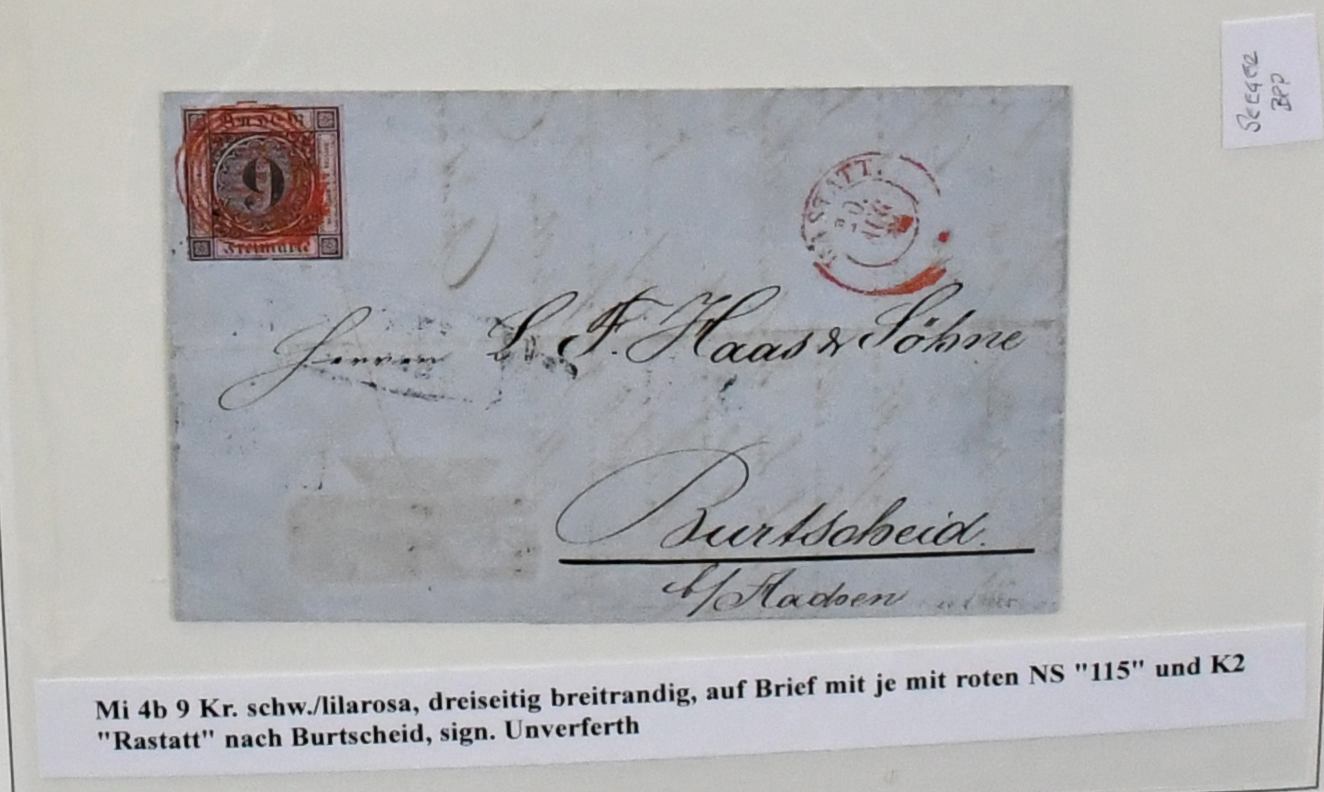 SEEGER
BPP
Baden
9
Freimarke
RASTATT.
Herren L. F. Haas & Söhne
Burtscheid.
b/ Aachen
Mi 4b 9 Kr. schw./lilarosa, dreiseitig breitrandig, auf Brief mit je mit roten NS "115" und K2
"Rastatt" nach Burtscheid, sign. Unverferth